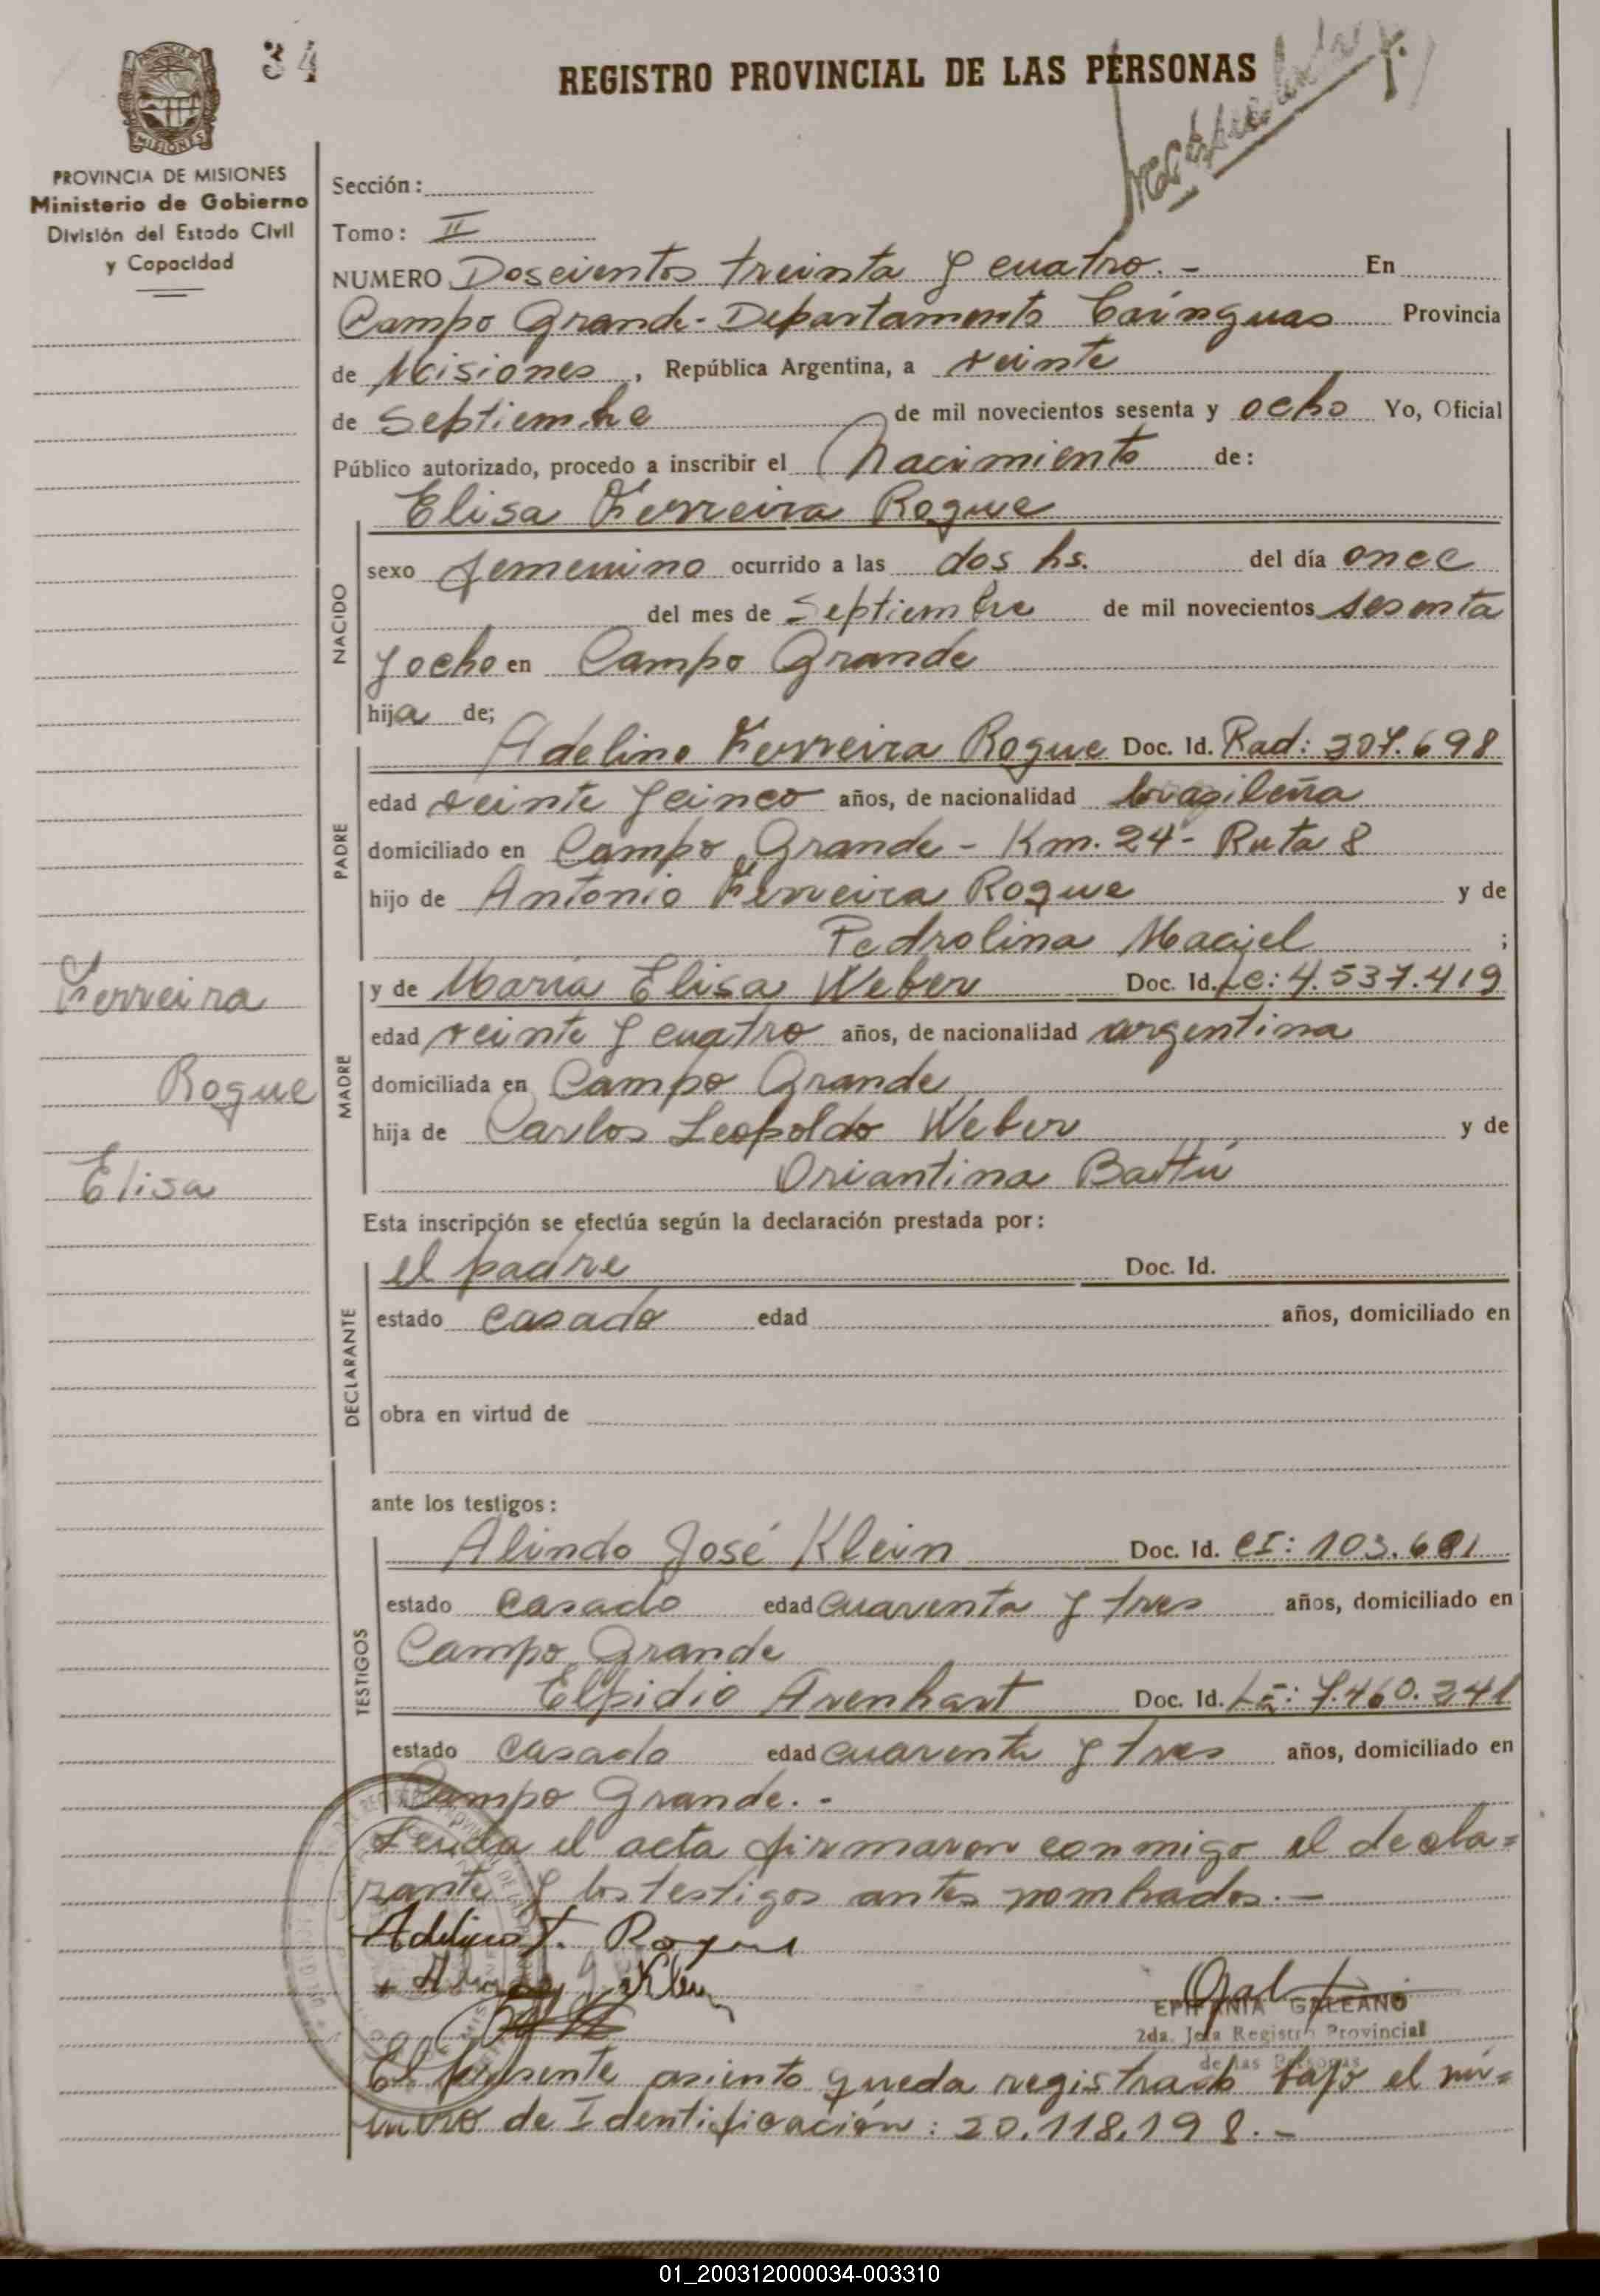 34
REGISTRO PROVINCIAL DE LAS PERSONAS
MISIONES
PROVINCIA DE MISIONES
Ministerio de Gobierno
División del Estado Civil
y Capacidad
Sección:
Tomo: II
NUMERO Doscientos treinta y cuatro.- En
Campo Grande-Departamento Caínguas Provincia
de Misiones, República Argentina, a veinte
de Septiembre de mil novecientos sesenta y ocho Yo, Oficial
Público autorizado, procedo a inscribir el Nacimiento de:
Elisa Ferreira Roque
NACIDO
sexo femenino ocurrido a las dos hs. del día once
del mes de Septiembre de mil novecientos sesenta
y ocho en Campo Grande
hija de;
PADRE
Adelino Ferreira Roque Doc. Id. Rad: 307.698
edad veinte y cinco años, de nacionalidad brazileña
domiciliado en Campo Grande - Km. 24 - Ruta 8
hijo de Antonio Ferreira Roque y de
Pedrolina Maciel ;
Ferreira
Roque
Elisa
MADRE
y de María Elisa Weber Doc. Id. Lc: 4.537.419
edad veinte y cuatro años, de nacionalidad argentina
domiciliada en Campo Grande
hija de Carlos Leopoldo Weber y de
Oriantina Battú
Esta inscripción se efectúa según la declaración prestada por:
DECLARANTE
el padre Doc. Id.
estado casado edad años, domiciliado en
obra en virtud de
ante los testigos:
TESTIGOS
Alindo José Klein Doc. Id. CI: 103.681
estado casado edad cuarenta y tres años, domiciliado en
Campo Grande
Elpidio Arenhart Doc. Id. LE: 7.460.241
estado casado edad cuarenta y tres años, domiciliado en
Campo Grande.-
Leída el acta firmaron conmigo el decla=
rante y los testigos antes nombrados.-
Adelino F. Roque
Klein
EPIFANIA GALEANO
2da. Jefa Registro Provincial
de las Personas
El presente asiento queda registrado bajo el nú=
mero de Identificación: 20.118.198.-
01_200312000034-003310